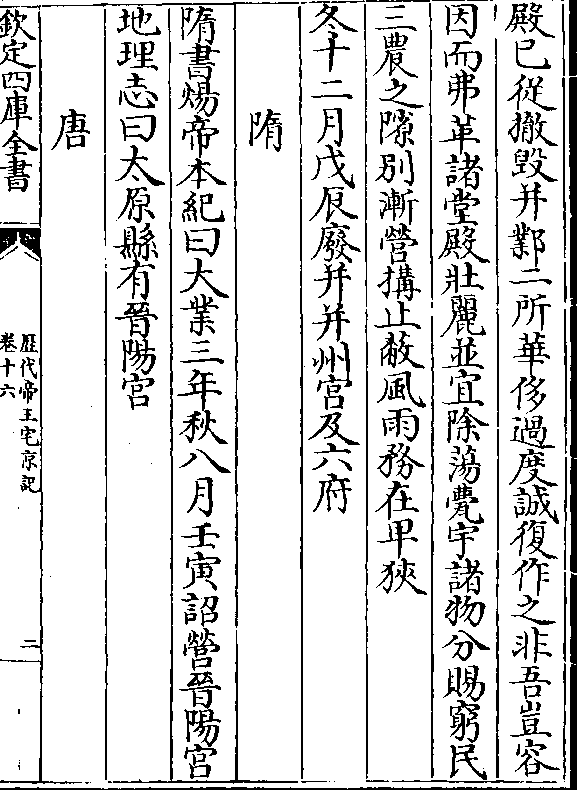 殿已從撤毁并鄴二所華侈過度誠復作之非吾豈容
因而弗革諸堂殿壯麗並宜除蕩甍宇諸物分賜窮民
三農之隙別漸營搆止蔽風雨務在卑狹
冬十二月戊辰廢并并州宫及六府
隋
隋書煬帝本紀曰大業三年秋八月壬寅詔營晉陽宫
地理志曰太原縣有晉陽宫
唐
欽定四庫全書
歴代帝王宅京記
卷十六
二